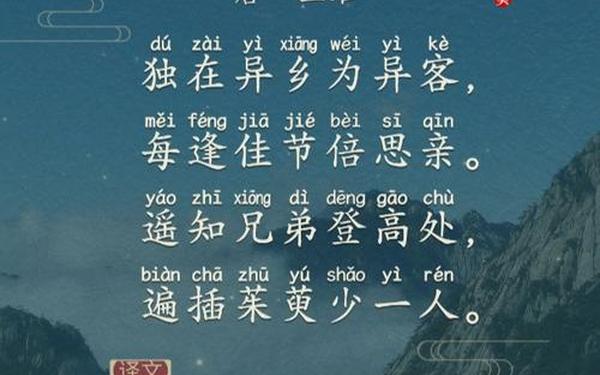 dú zài yì xiāng wéi yì kè
独在异乡为异客，
měi féng jiā jié bèi sī qīn
每逢佳节倍思亲。
yáo zhī xiōng dì dēng gāo chù
遥知兄弟登高处，
biàn chā zhū yú shǎo yì rén
遍插茱萸少一人。
译文